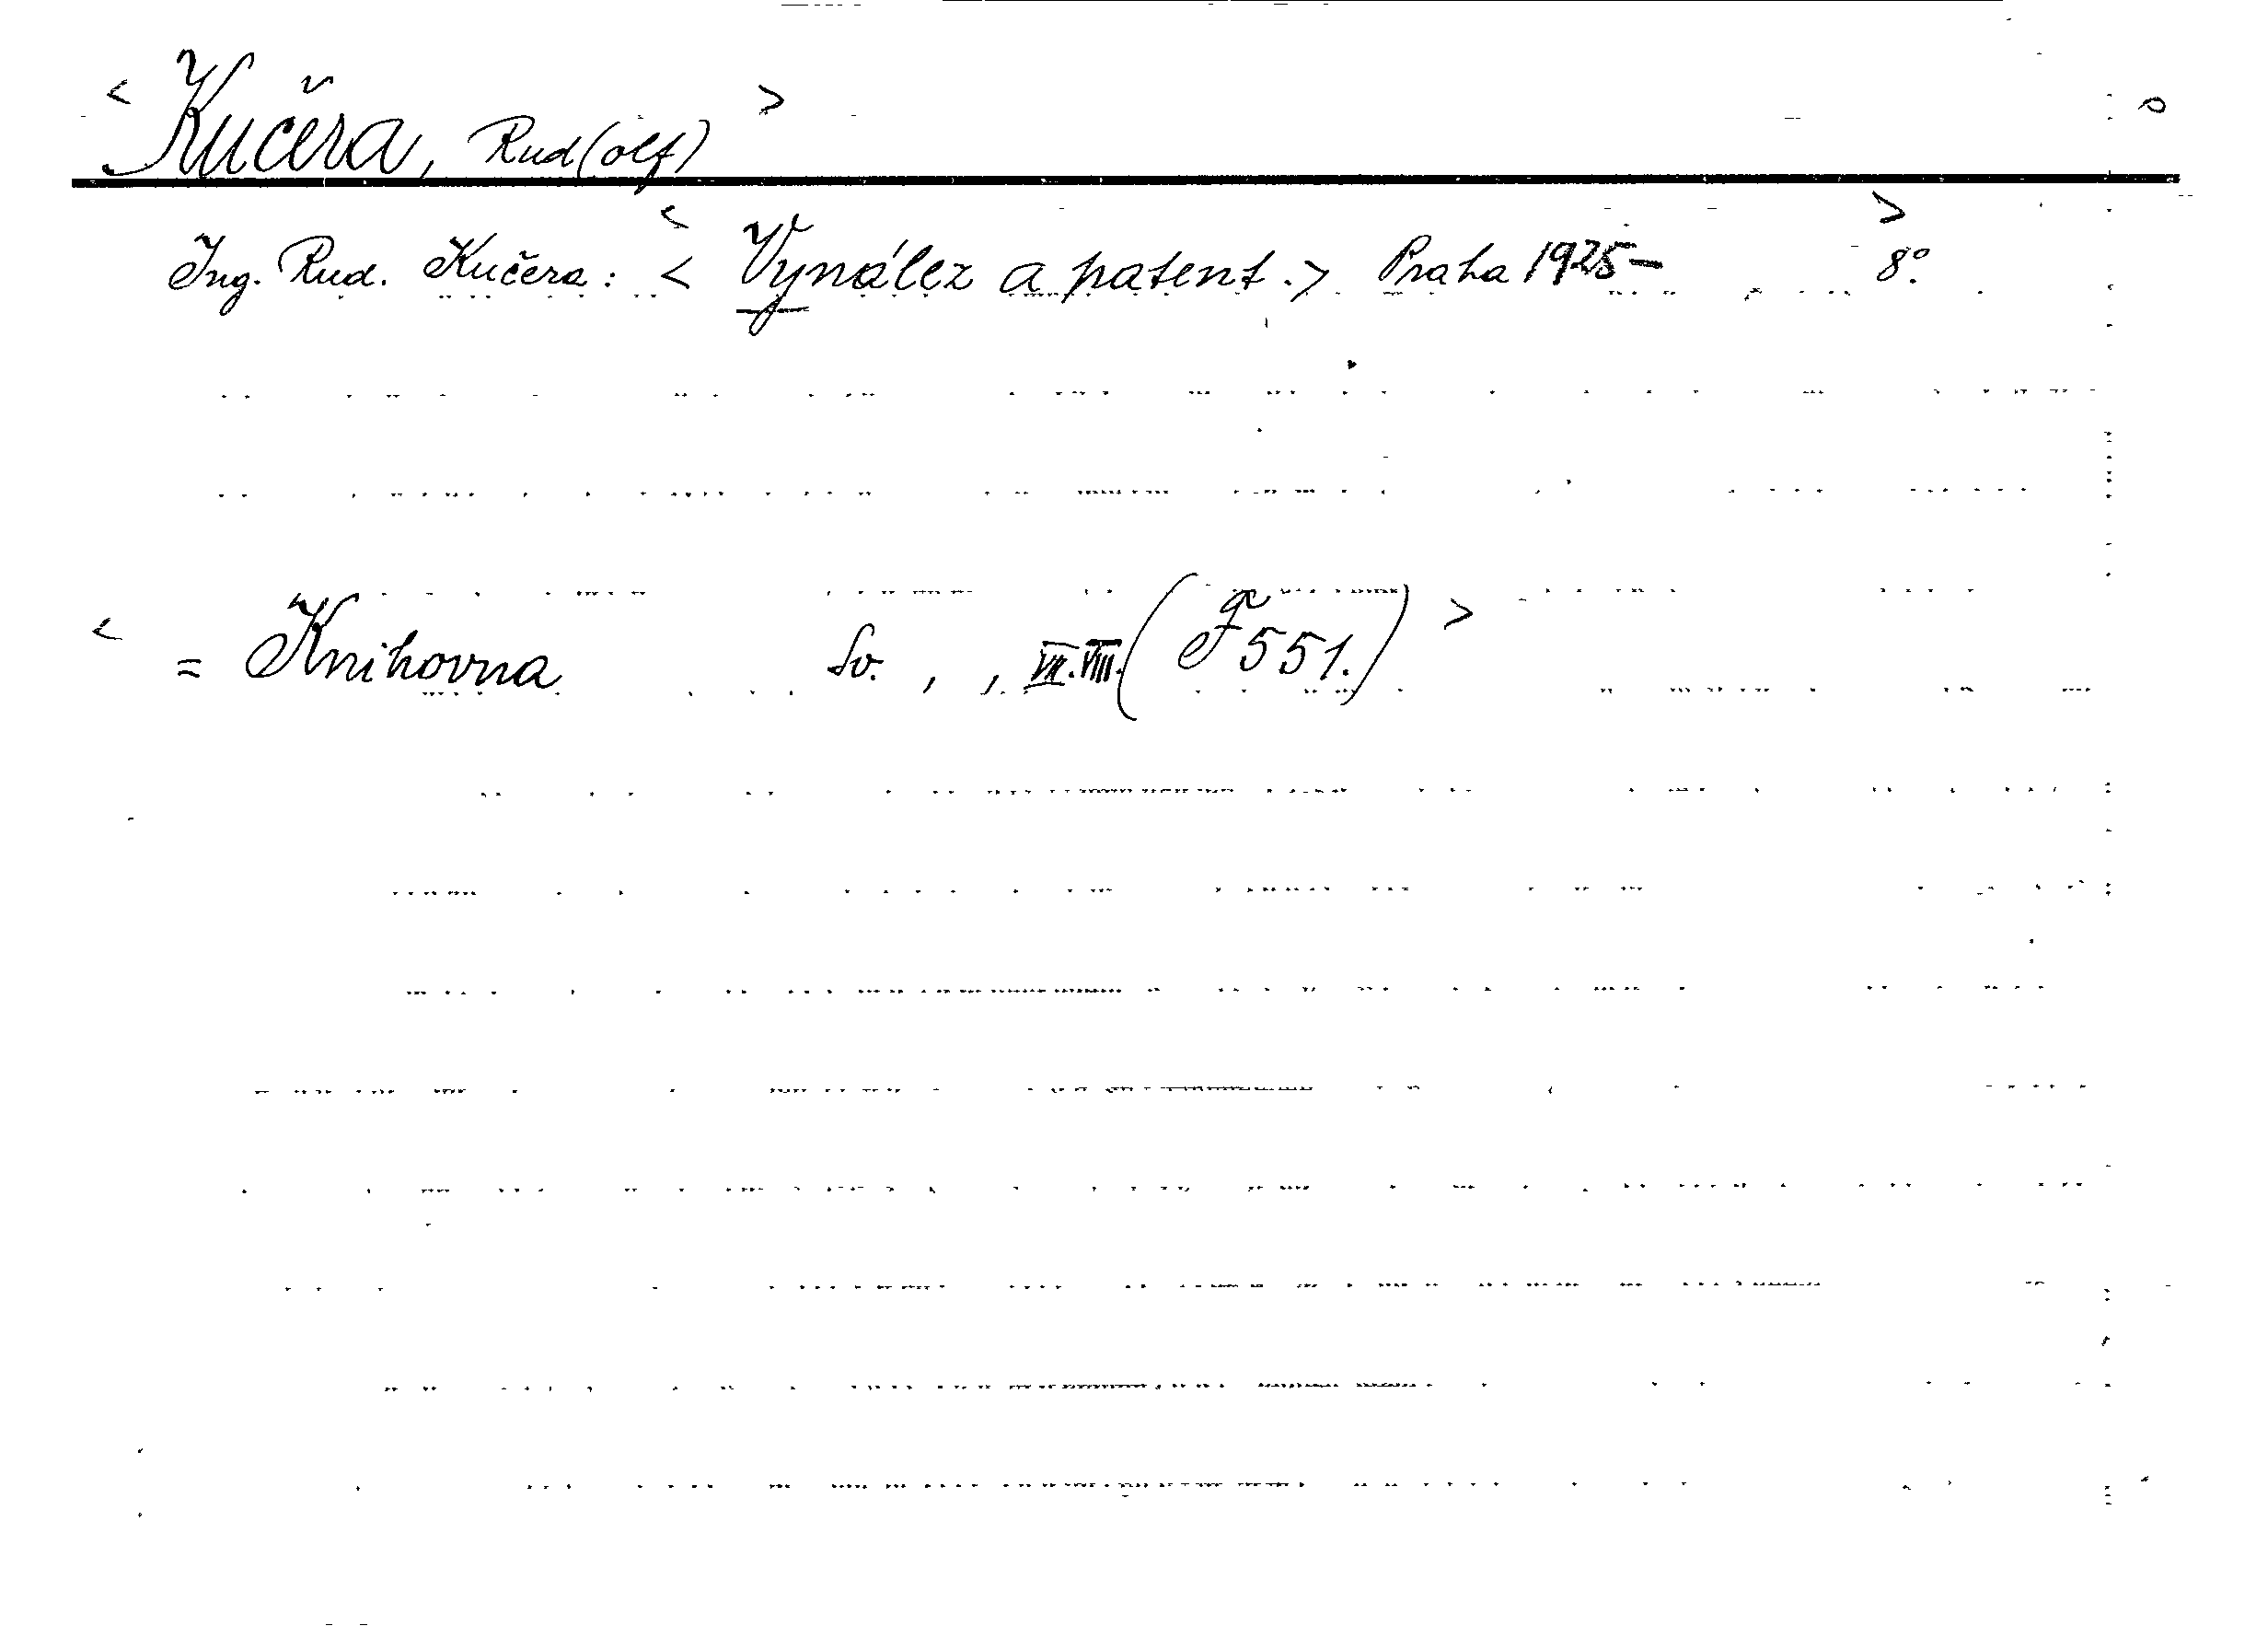 < Kučera, Rud(olf) >
Ing. Rud. Kučera: < Vynález a patent. > Praha 1925– 8°.
< = Knihovna Sv. , , VII. VIII. (F 551.) >